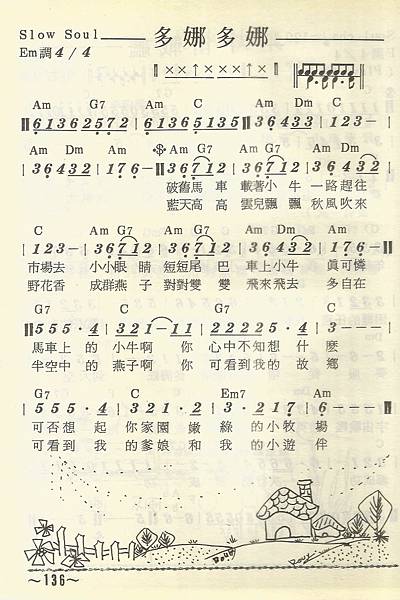 Slow Soul 多娜多娜
Em調 4/4 ‖ ××↑×××↑× ‖
Am G7 Am C Am Dm C
‖ 61362572 | 61365135 | 36433 | 123– |
Am Dm Am 𝄋 Am G7 Am G7 Am Dm
| 36432 | 176– ‖ 36712 | 36712 | 36433 |
破舊馬 車 載著小 牛 一路趕往
藍天高 高 雲兒飄 飄 秋風吹來
C Am G7 Am G7 Am Dm Am
| 123– | 36712 | 36712 | 36432 | 176– ‖
市場去 小小眼 睛 短短尾 巴 車上小牛 眞可憐
野花香 成群燕 子 對對雙 雙 飛來飛去 多自在
G7 C G7 C
‖ 555·4 | 321–11 | 22225·4 | 3––– |
馬車上 的 小牛啊 你 心中不知想 什 麼
半空中 的 燕子啊 你 可看到我的 故 鄉
G7 C Em7 Am
| 555·4 | 321·2 | 3·217 | 6––– ‖
可否想 起 你家園 嫩 綠 的小牧 場
可看到 我 的爹娘 和 我 的小遊 伴
~136~